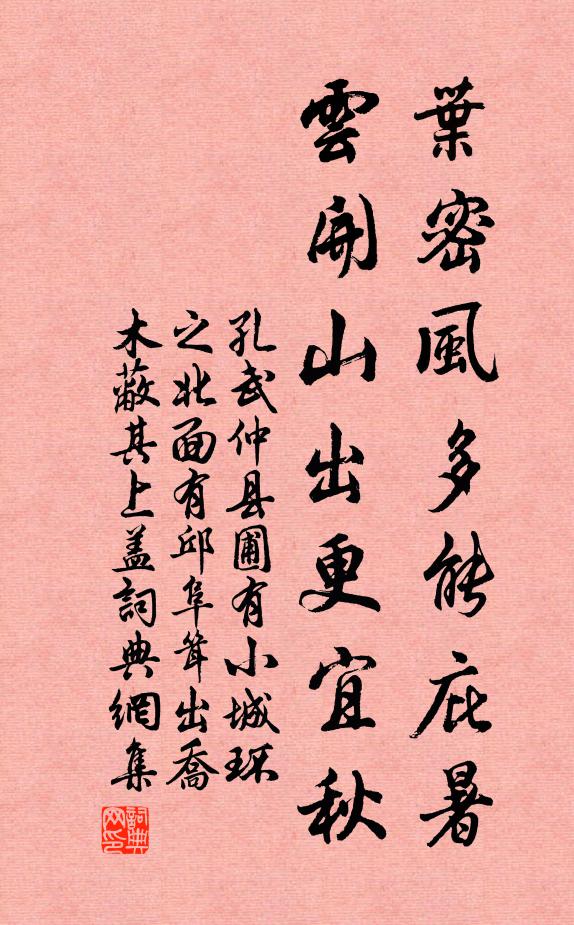 葉密風多能庇暑
雲開山出更宜秋
孔武仲县圃有小城環
之北面有邱阜耸出喬
木蔽其上盖詞典網集
詞典网印